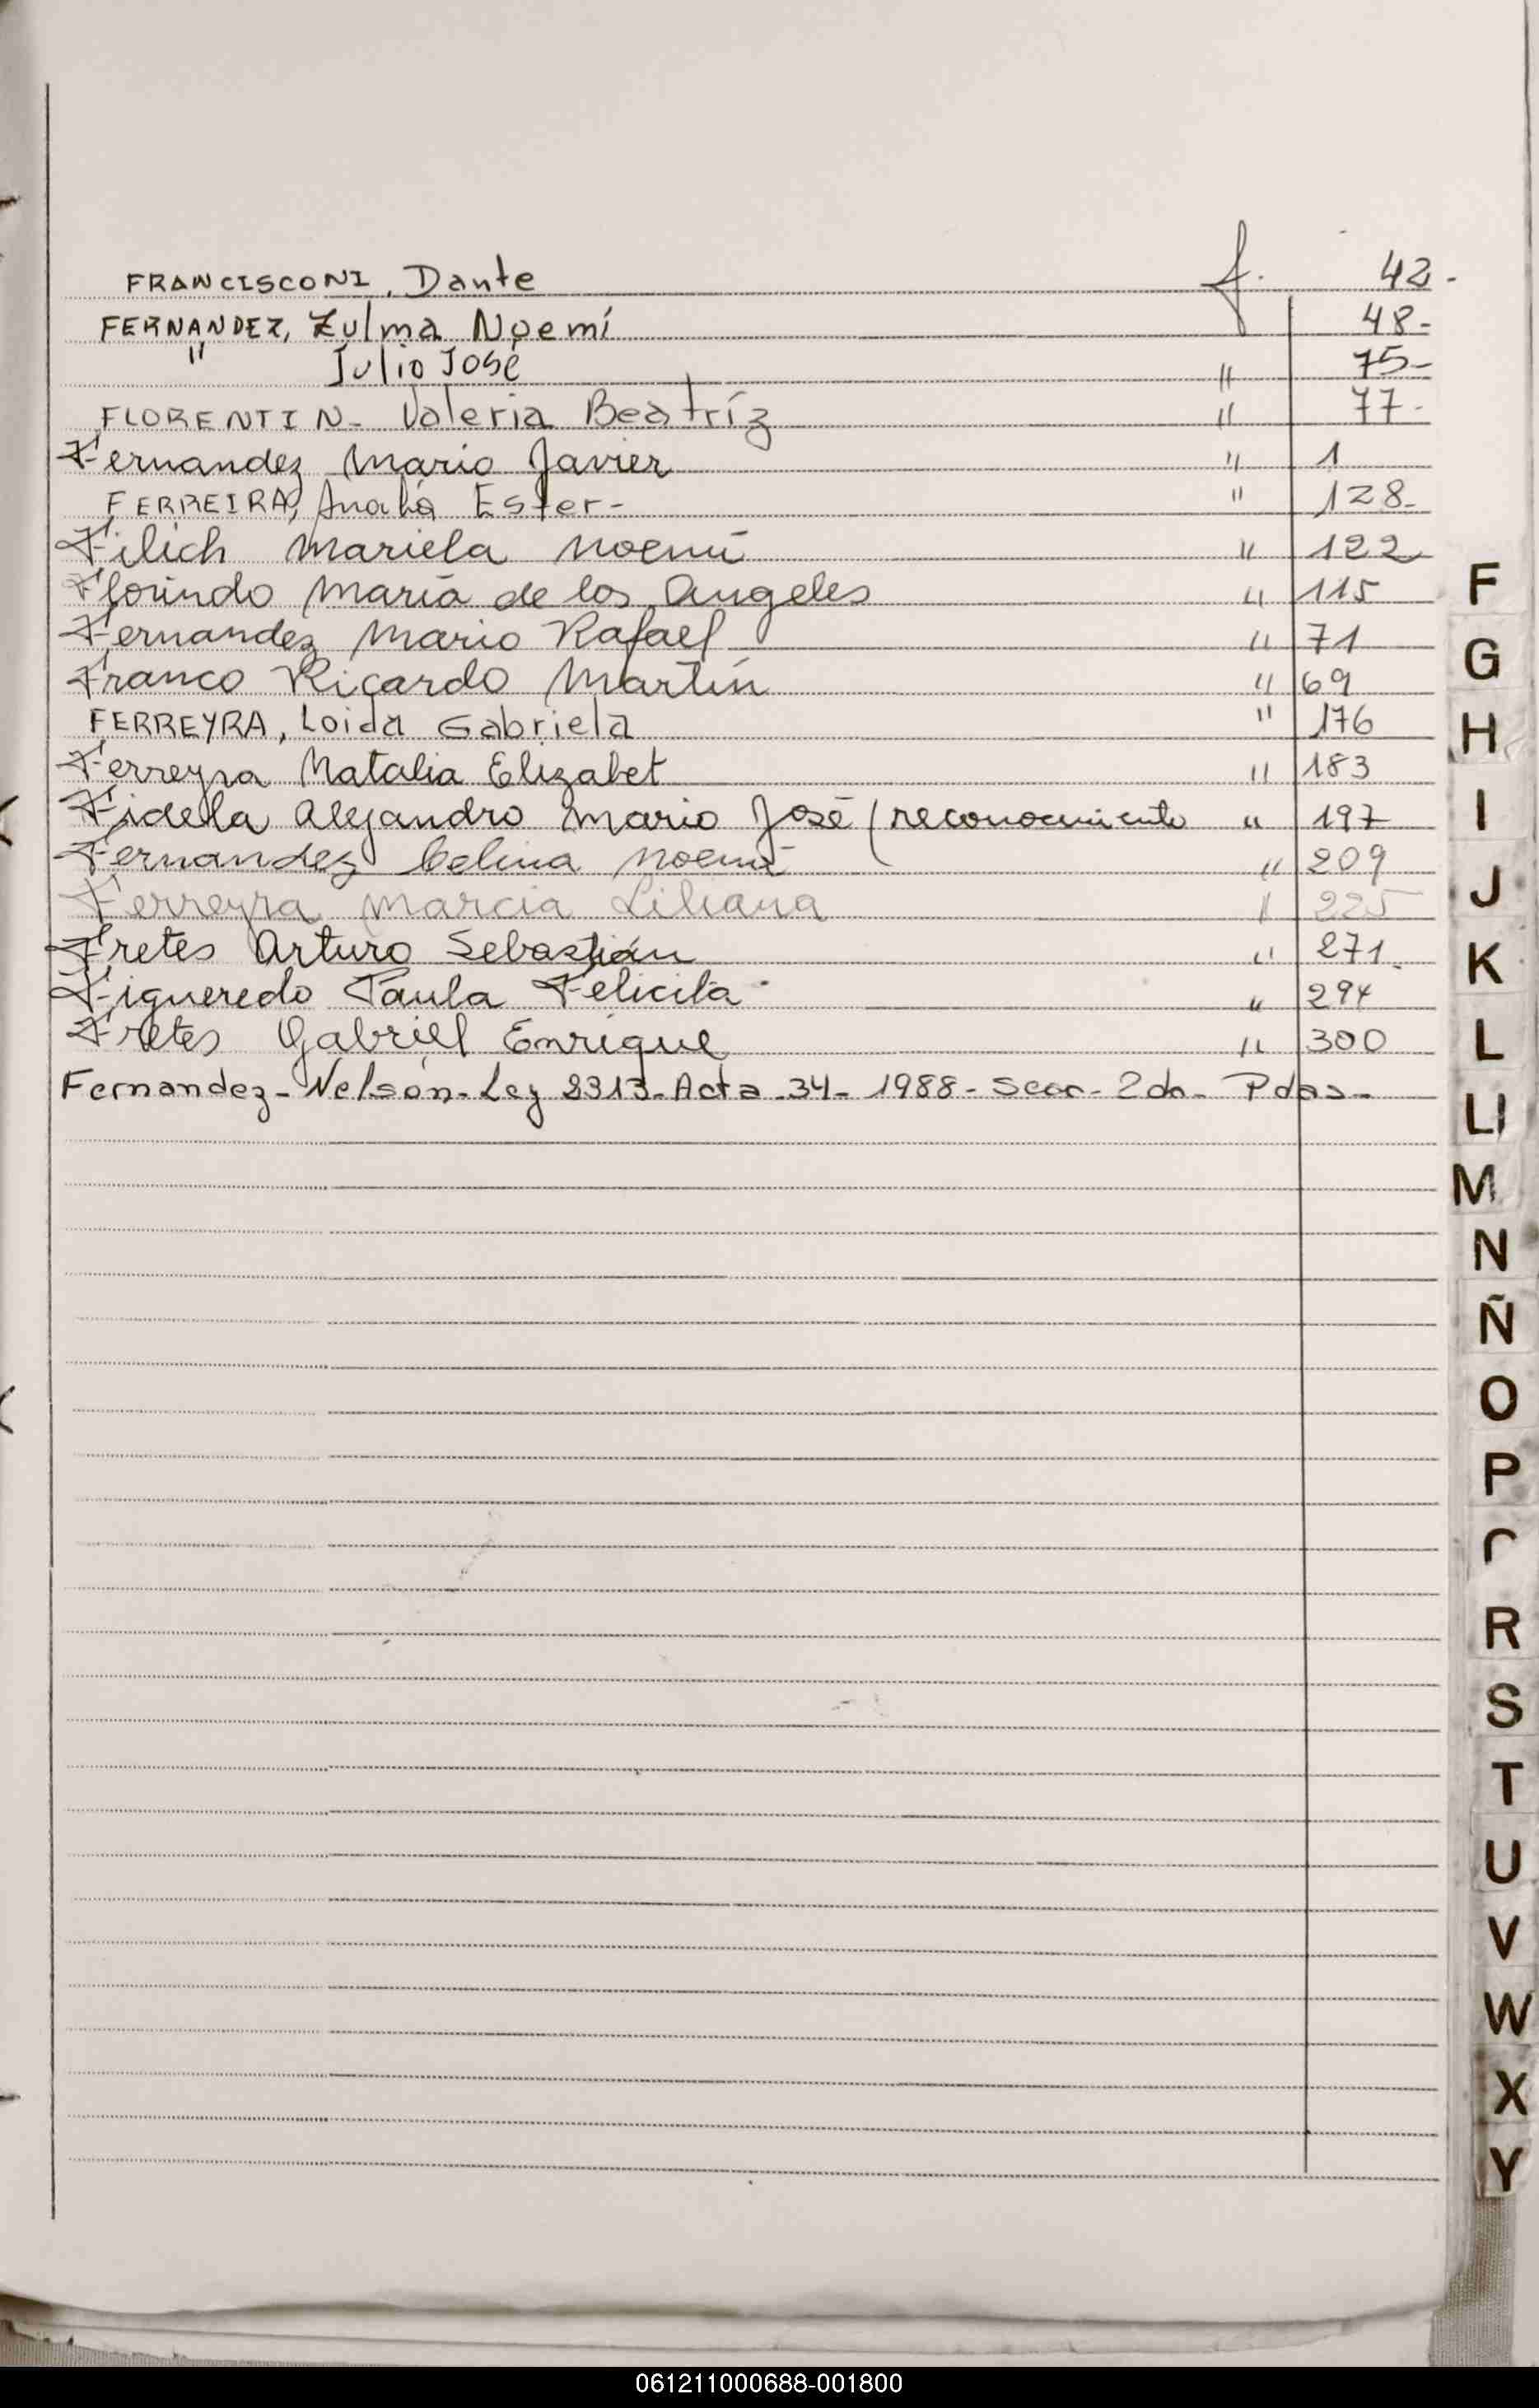 FRANCISCONI, Dante f. 42-
FERNANDEZ, Zulma Noemí 48-
" Julio José " 75-
FLORENTIN- Valeria Beatríz " 77-
Fernandez Mario Javier " 1
FERREIRA, Analía Ester- " 128-
Filich Mariela Noemí " 122
Florindo María de los Angeles " 115
Fernandez Mario Rafael " 71
Franco Ricardo Martín " 69
FERREYRA, Loida Gabriela " 176
Ferreyra Natalia Elizabet " 183
Fidela Alejandro Mario José (reconocimiento " 197
Fernandez Celina Noemí " 209
Ferreyra Marcia Liliana " 225
Fretes Arturo Sebastián " 271
Figueredo Paula Felicita " 294
Fretes Gabriel Enrique " 300
Fernandez- Nelson- Ley 2313- Acta -34- 1988- Secc- 2da- Pdas-
F
G
H
I
J
K
L
Ll
M
N
Ñ
O
P
R
S
T
U
V
W
X
Y
061211000688-001800